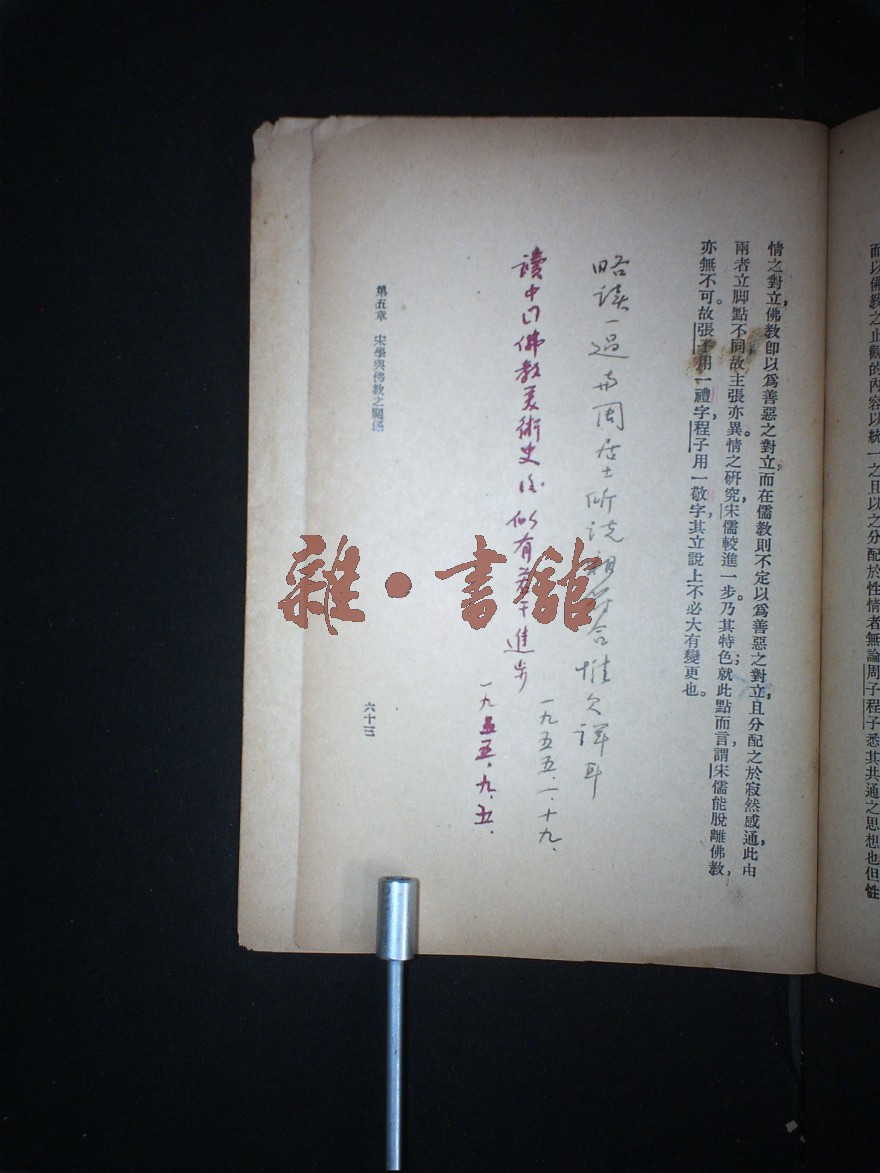 而以佛教之止觀的內容以統一之且以之分配於性情者無論周子程子悉其共通之思想也但性
情之對立，佛教卽以爲善惡之對立，而在儒教則不定以爲善惡之對立，且分配之於寂然感通，此由
兩者立脚點不同，故主張亦異。情之硏究，宋儒較進一步，乃其特色；就此點而言，謂宋儒能脫離佛教，
亦無不可。故張子用一禮字，程子用一敬字，其立說上不必大有變更也。
略读一過与周居士所说相符合惟欠詳耳
一九五五.一.十九.
讀中日佛教美術史后似有若干進步
一九五五.九.五.
第五章 宋學與佛教之關係
六十三
雜·書舘